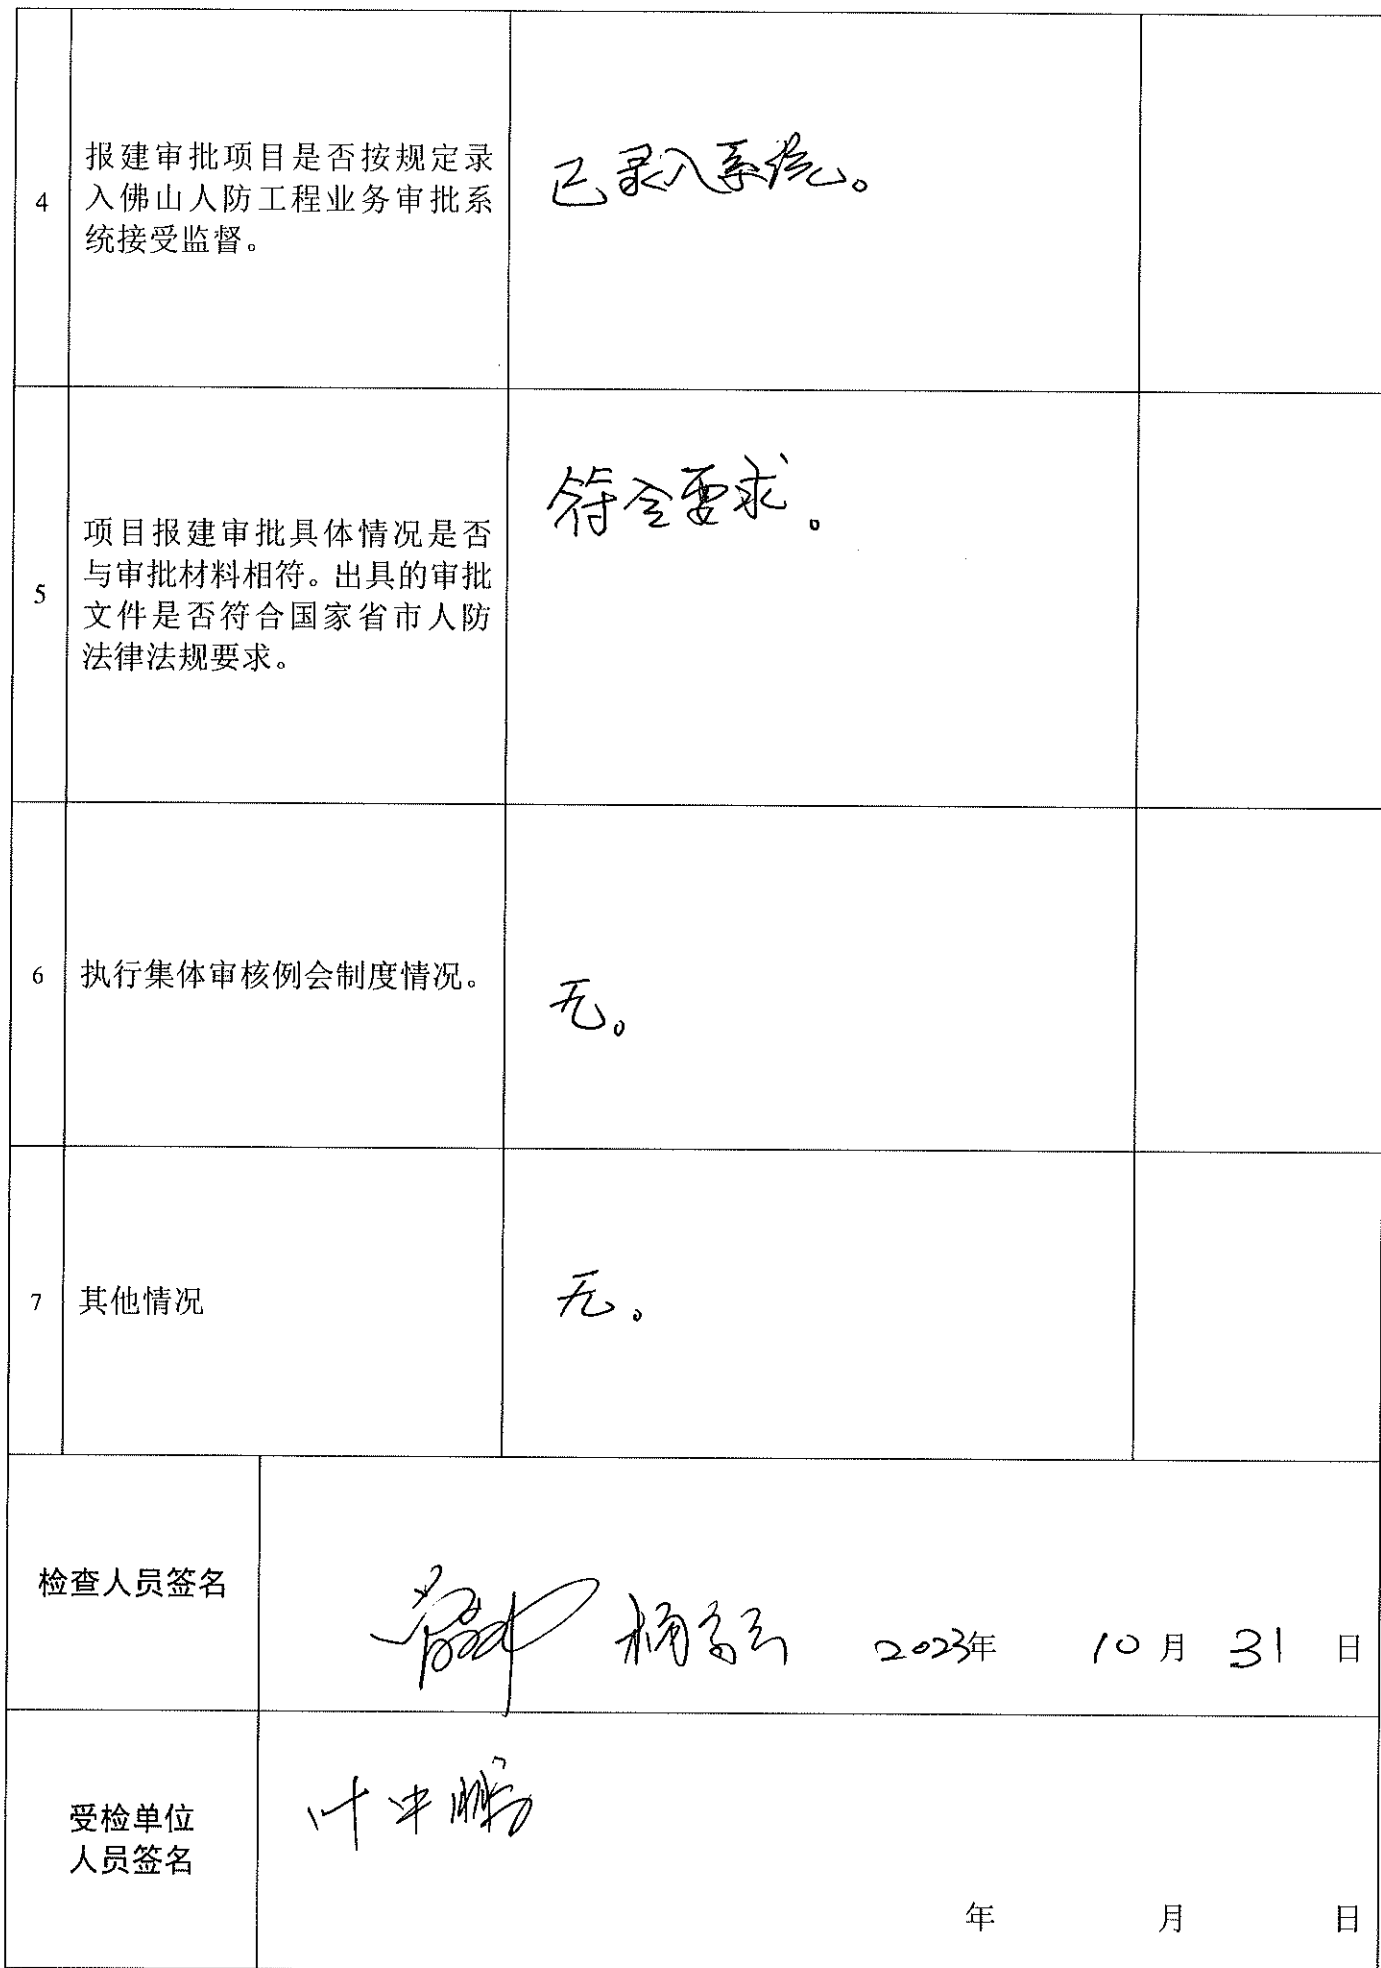 4
报建审批项目是否按规定录
入佛山人防工程业务审批系
统接受监督。
已录入系统。
5
项目报建审批具体情况是否
与审批材料相符。出具的审批
文件是否符合国家省市人防
法律法规要求。
符合要求。
6
执行集体审核例会制度情况。
无。
7
其他情况
无。
检查人员签名
2023年 10月 31 日
受检单位
人员签名
叶中鹏
年 月 日